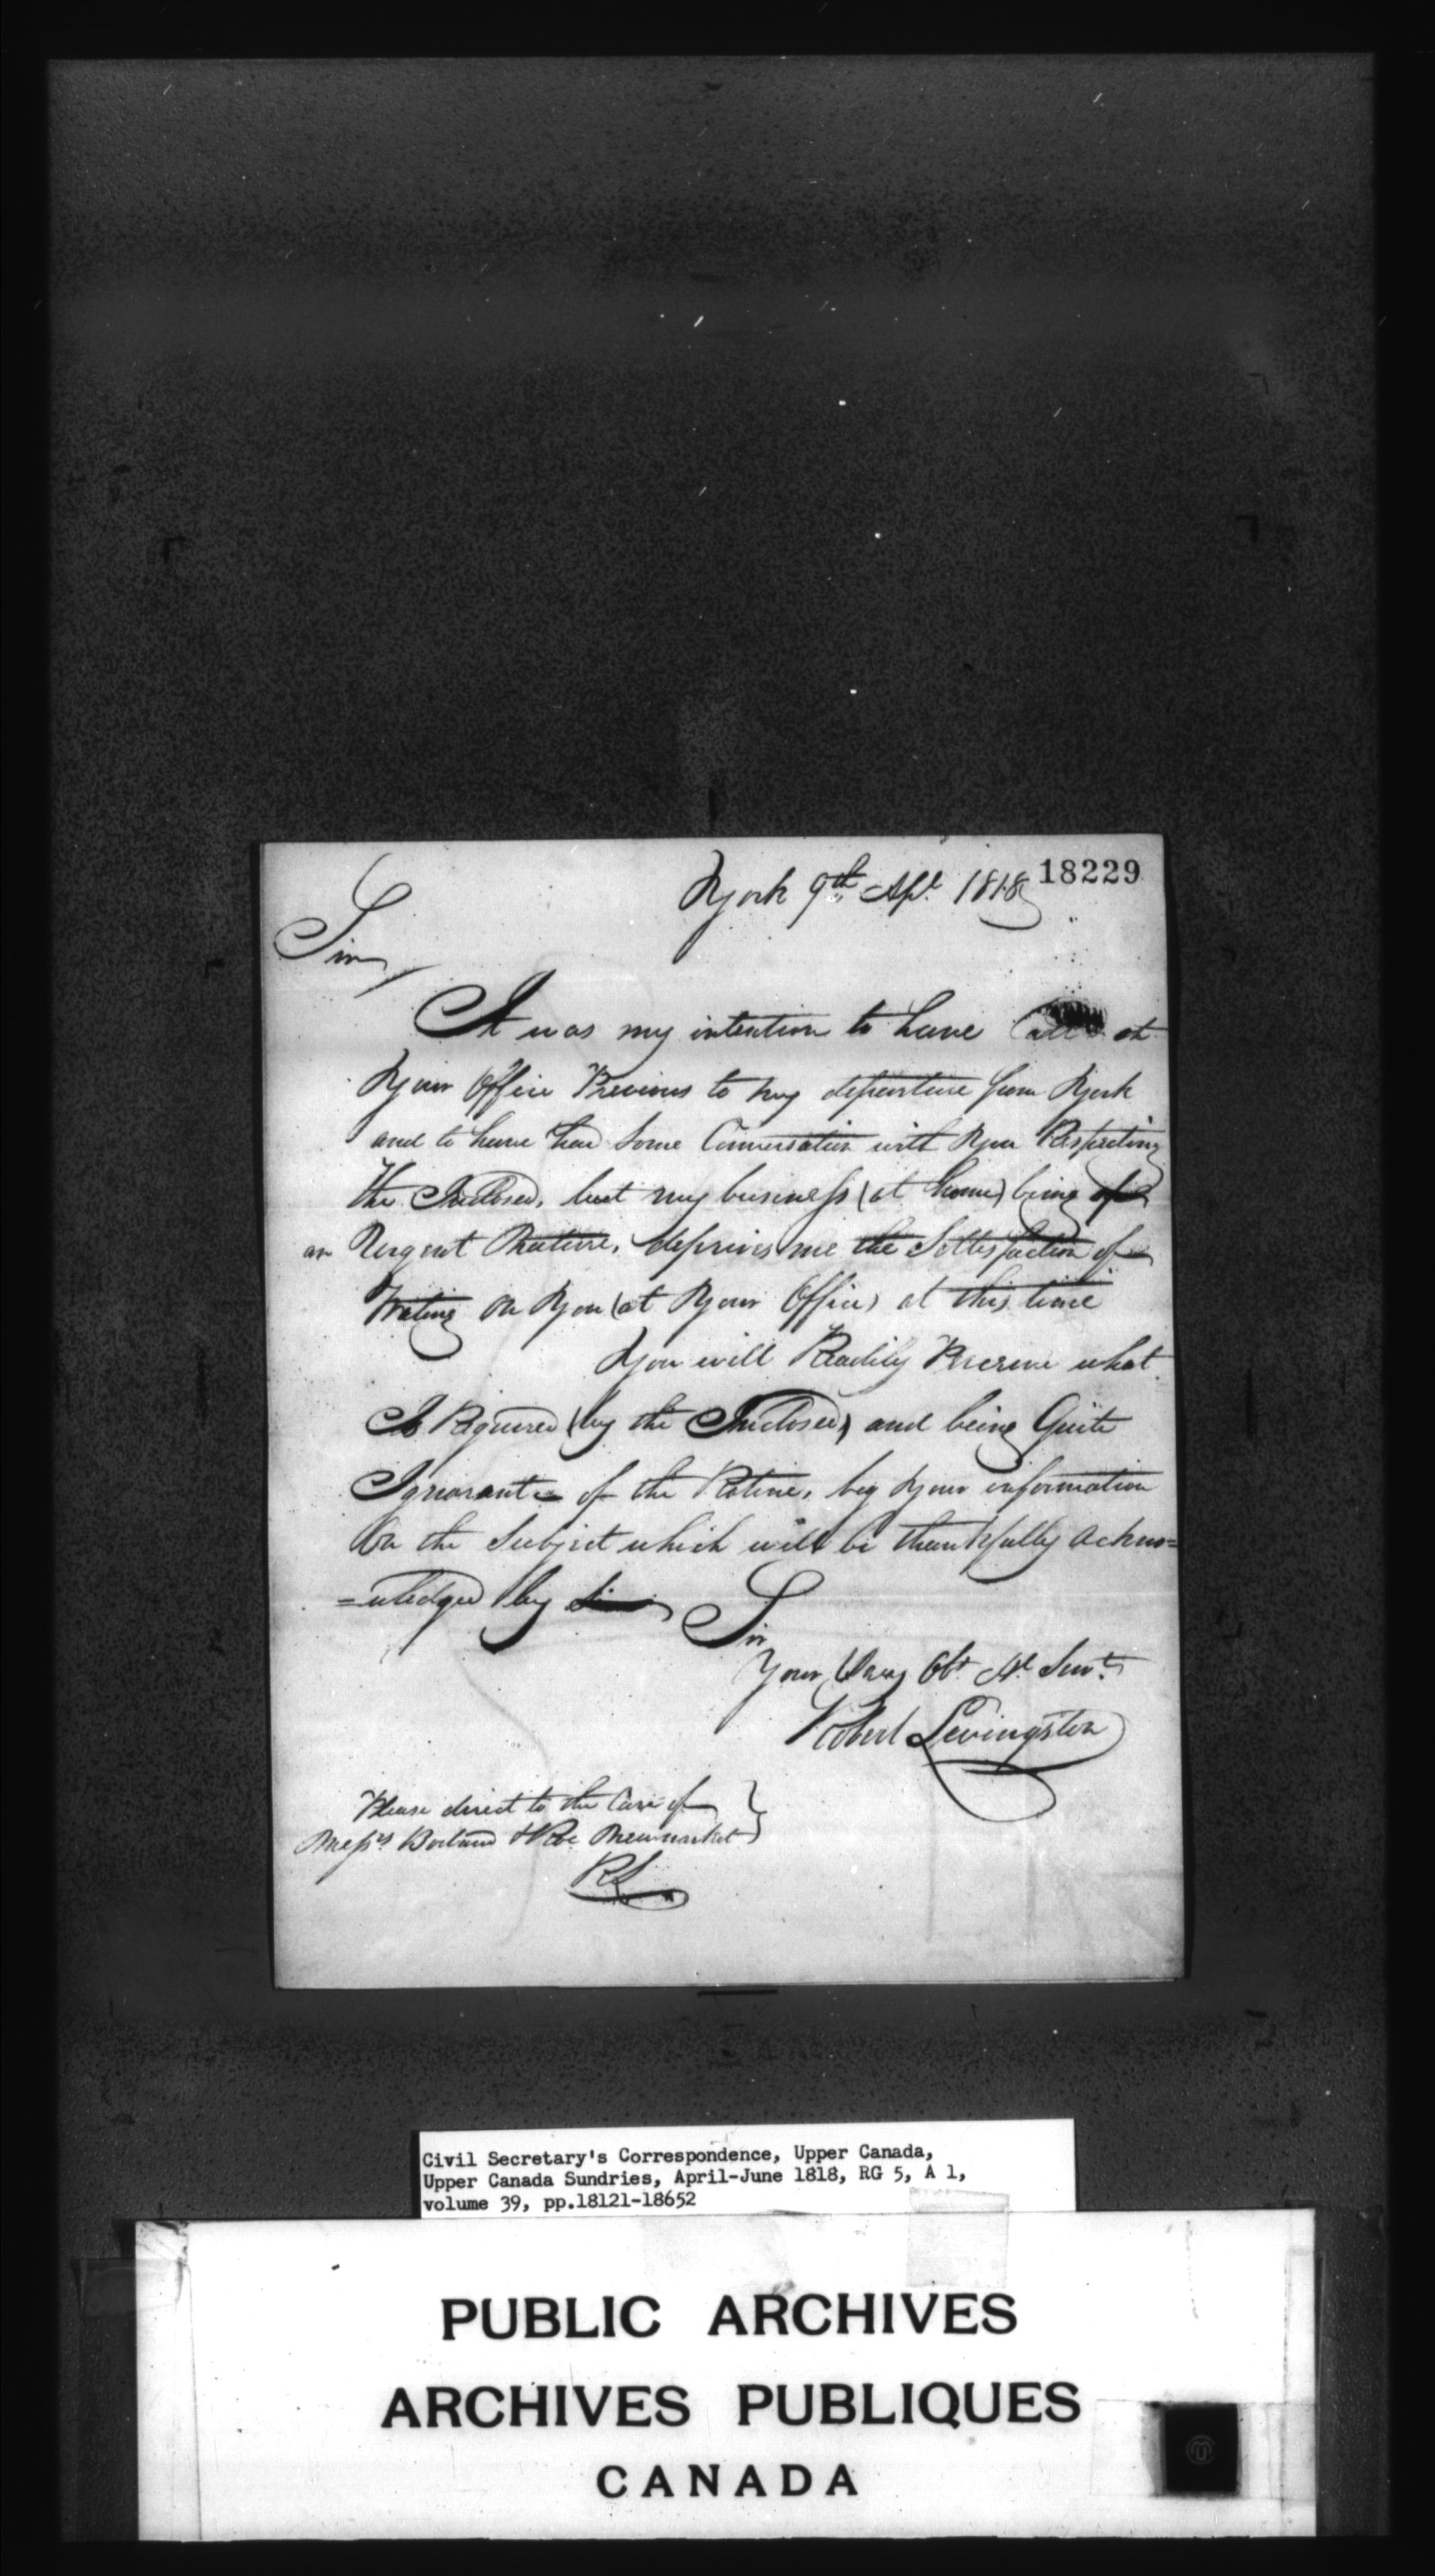 18229
York 9th Apl. 1818
Sir
It was my intention to have Call at
Your Office Previous to my departure from York
and to have had Some Conversation with You Respecting
the Inclosed, but my business (at home) being of
an Urgent Nature, deprives me the Sattesfaction of
Waiting on You (at Your Office) at this time
You will Readily Perceive what
Is Requered (by the Inclosed) and being Quite
Ignorant of the Rotine, beg Your information
On the Subject which will be thankfully ackno=
=wledged by Sir
Your Very Obt. Hl. Servt.
Robert Levingston
Please direct to the Care of
Messrs Borland & Roe Newmarket
RL
Civil Secretary's Correspondence, Upper Canada,
Upper Canada Sundries, April-June 1818, RG 5, A 1,
volume 39, pp.18121-18652
PUBLIC ARCHIVES
ARCHIVES PUBLIQUES
CANADA